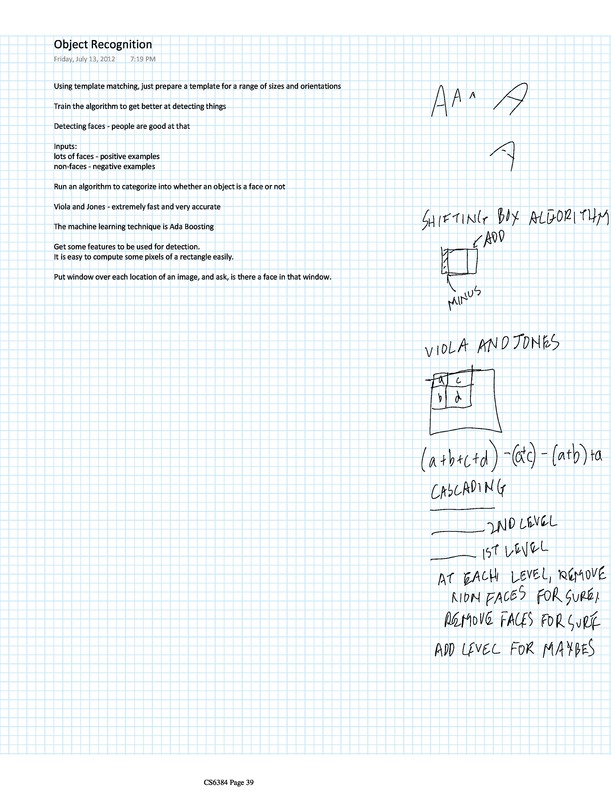 Object Recognition
Friday, July 13, 2012 7:19 PM
Using template matching, just prepare a template for a range of sizes and orientations
Train the algorithm to get better at detecting things
Detecting faces - people are good at that
Inputs:
lots of faces - positive examples
non-faces - negative examples
Run an algorithm to categorize into whether an object is a face or not
Viola and Jones - extremely fast and very accurate
The machine learning technique is Ada Boosting
Get some features to be used for detection.
It is easy to compute some pixels of a rectangle easily.
Put window over each location of an image, and ask, is there a face in that window.
A A A A
A
SHIFTING BOX ALGORITHM
ADD
MINUS
VIOLA AND JONES
a c
b d
(a+b+c+d) -(a+c) - (a+b) +a
CASCADING
2ND LEVEL
1ST LEVEL
AT EACH LEVEL, REMOVE
NON FACES FOR SURE,
REMOVE FACES FOR SURE
ADD LEVEL FOR MAYBES
CS6384 Page 39